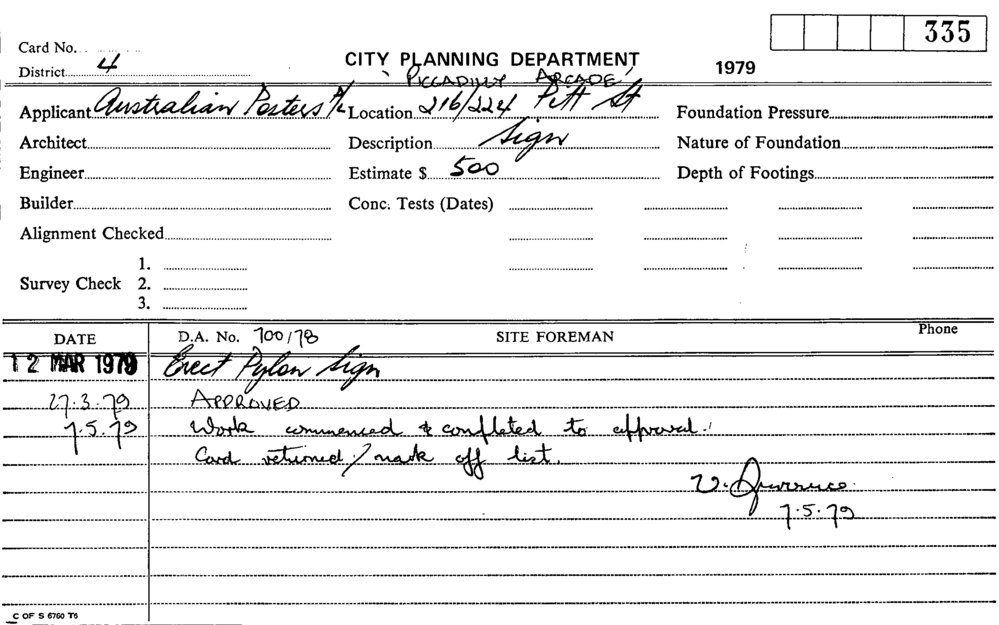 335
Card No.
CITY PLANNING DEPARTMENT
District 4
'PICCADILLY ARCADE'
1979
Applicant Australian Posters P/L Location 216/224 Pitt St Foundation Pressure
Architect Description Sign Nature of Foundation
Engineer Estimate $ 500 Depth of Footings
Builder Conc. Tests (Dates)
Alignment Checked
1.
Survey Check 2.
3.
DATE D.A. No. 700/78 SITE FOREMAN Phone
12 MAR 1979 Erect Pylon Sign
27.3.79 APPROVED
7.5.79 Work commenced & completed to approval.
Card returned / mark off list.
V.
7.5.79
C OF S 6760 T6